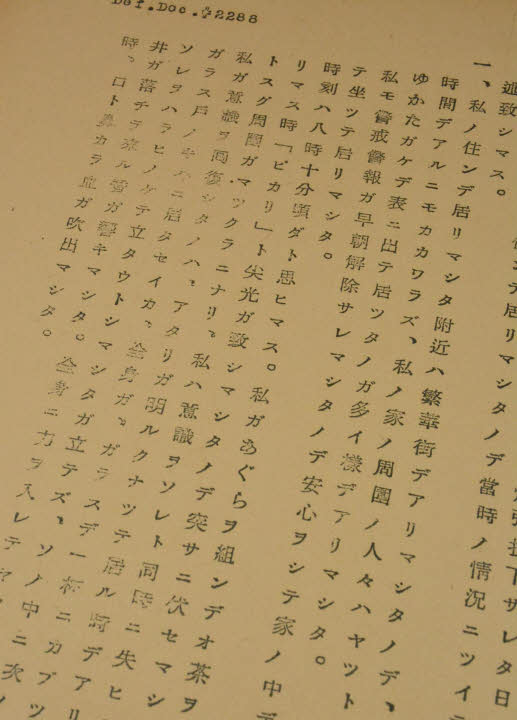 Def.Doc.#2288
投下サレタ日
述致シマス。
テ居リマシタノデ當時ノ情況ニツイテ
一、私ノ住ンデ居リマシタ附近ハ繁華街デアリマシタノデ、
時間デアルニモカカワラズ、私ノ家ノ周圍ノ人々ハヤット
ゆかたガケデ表ニ出テ居ツタノガ多イ樣デアリマシタ。
私モ警戒警報ガ早朝解除サレマシタノデ安心ヲシテ家ノ中デ
テ坐ツテ居リマシタ。
時刻ハ八時十分頃ダト思ヒマス。私ガあぐらヲ組ンデオ茶ヲ
リマス時「ピカリ」ト尖光ガ致シマシタノデ突サニ伏セマシ
トスグ周圍ガマックラニナリ、私ハ意識ヲソレト同時ニ失ヒ
私ガ意識ヲ回復シタノハ、アタリガ明ルクナツテ居ル時デアリ
ガラス戸ノキハニ居タセイカ、全身ガ、ガラスデ一杯ニカブツ
ソレヲハラヒノケテ立タウトシマシタガ立テズ、ソノ中ニ次ノ
井ガ落チテ來ル音ガ響キマシタ。全身ニ力ヲ入レテヤ
時、口ト鼻カラ血ガ吹出マシタ。